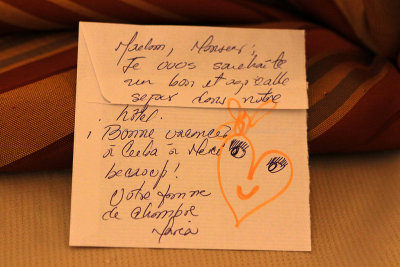 Madam, Monsieur;
Je vous souhaite
un bon et agreable
sejour dans notre
hotel.
Bonne vacances
à Cuba à
beacoup!
Votre femme
de chambre
Maria